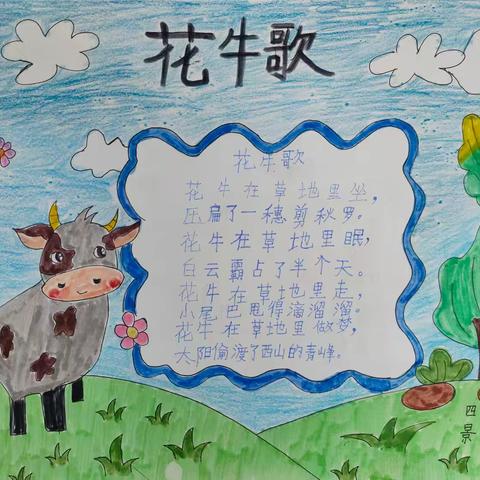 花牛歌
花牛歌
花牛在草地里坐，
压扁了一穗剪秋罗。
花牛在草地里眠，
白云霸占了半个天。
花牛在草地里走，
小尾巴甩得滴溜溜。
花牛在草地里做梦，
太阳偷渡了西山的青峰。
四
景